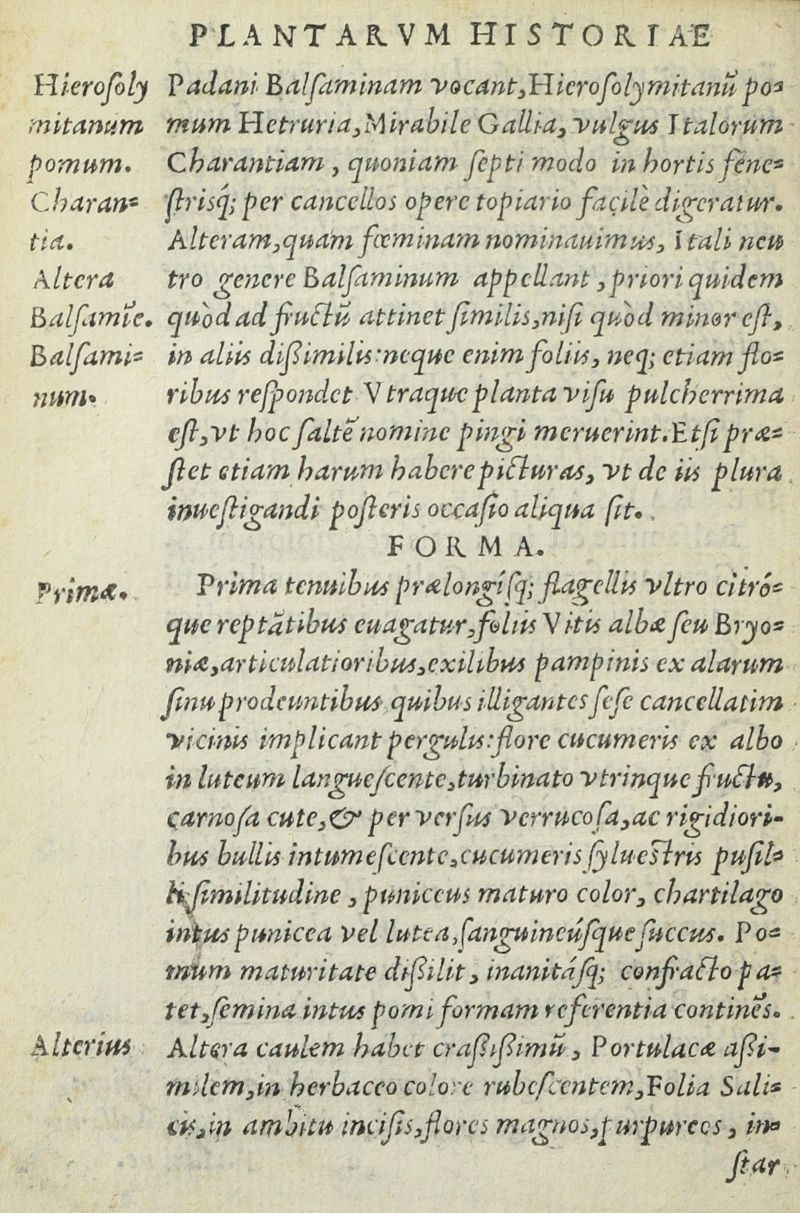 PLANTARVM HISTORIAE
Hieroſoly
mitanum
pomum.
Charan⸗
tia.
Altera
Balſamīe.
Balſami⸗
num.
Padani Balſaminam vocant,Hieroſolymitanū po⸗
mum Hetruria,Mirabile Gallia, vulgus Italorum
Charantiam , quoniam ſepti modo in hortis fene⸗
ſtrisq́; per cancellos opere topiario facilè digeratur.
Alteram,quam fœminam nominauimus, Itali neu
tro genere Balſaminum appellant ,priori quidem
quòd ad fructū attinet ſimilis,niſi quòd minor eſt,
in aliis dißimilis:neque enim foliis, neq; etiam flo⸗
ribus reſpondet Vtraque planta viſu pulcherrima
eſt,vt hoc ſaltē nomine pingi meruerint.Etſi præ⸗
ſtet etiam harum habere picturas, vt de iis plura
inueſtigandi poſteris occaſio aliqua ſit.
FORMA.
Primæ.
Prima tenuibus prælongiſq́; flagellis vltro citró⸗
que reptātibus euagatur,foliis Vitis albæ ſeu Bryo⸗
niæ,articulatioribus,exilibus pampinis ex alarum
ſinu prodeuntibus,quibus illigantes ſeſe cancellatim
vicinis implicant pergulis:flore cucumeris ex albo
in luteum langueſcente,turbinato vtrinque fructu,
carnoſa cute,& per verſus verrucoſa,ac rigidiori-
bus bullis intumeſcente,cucumeris ſylueſtris puſil⸗
li ſimilitudine , puniceus maturo color, chartilago
intus punicea vel lutea,ſanguineúſque ſuccus. Po⸗
mum maturitate dißilit , inanitáſq; confracto pa⸗
tet,ſemina intus pomi formam referentia continēs.
Alterius
Altera caulem habet craßißimū , Portulacæ aßi-
milem,in herbaceo colore rubeſcentem,Folia Sali⸗
cis,in ambitu inciſis,flores magnos,purpureos , in⸗
ſtar